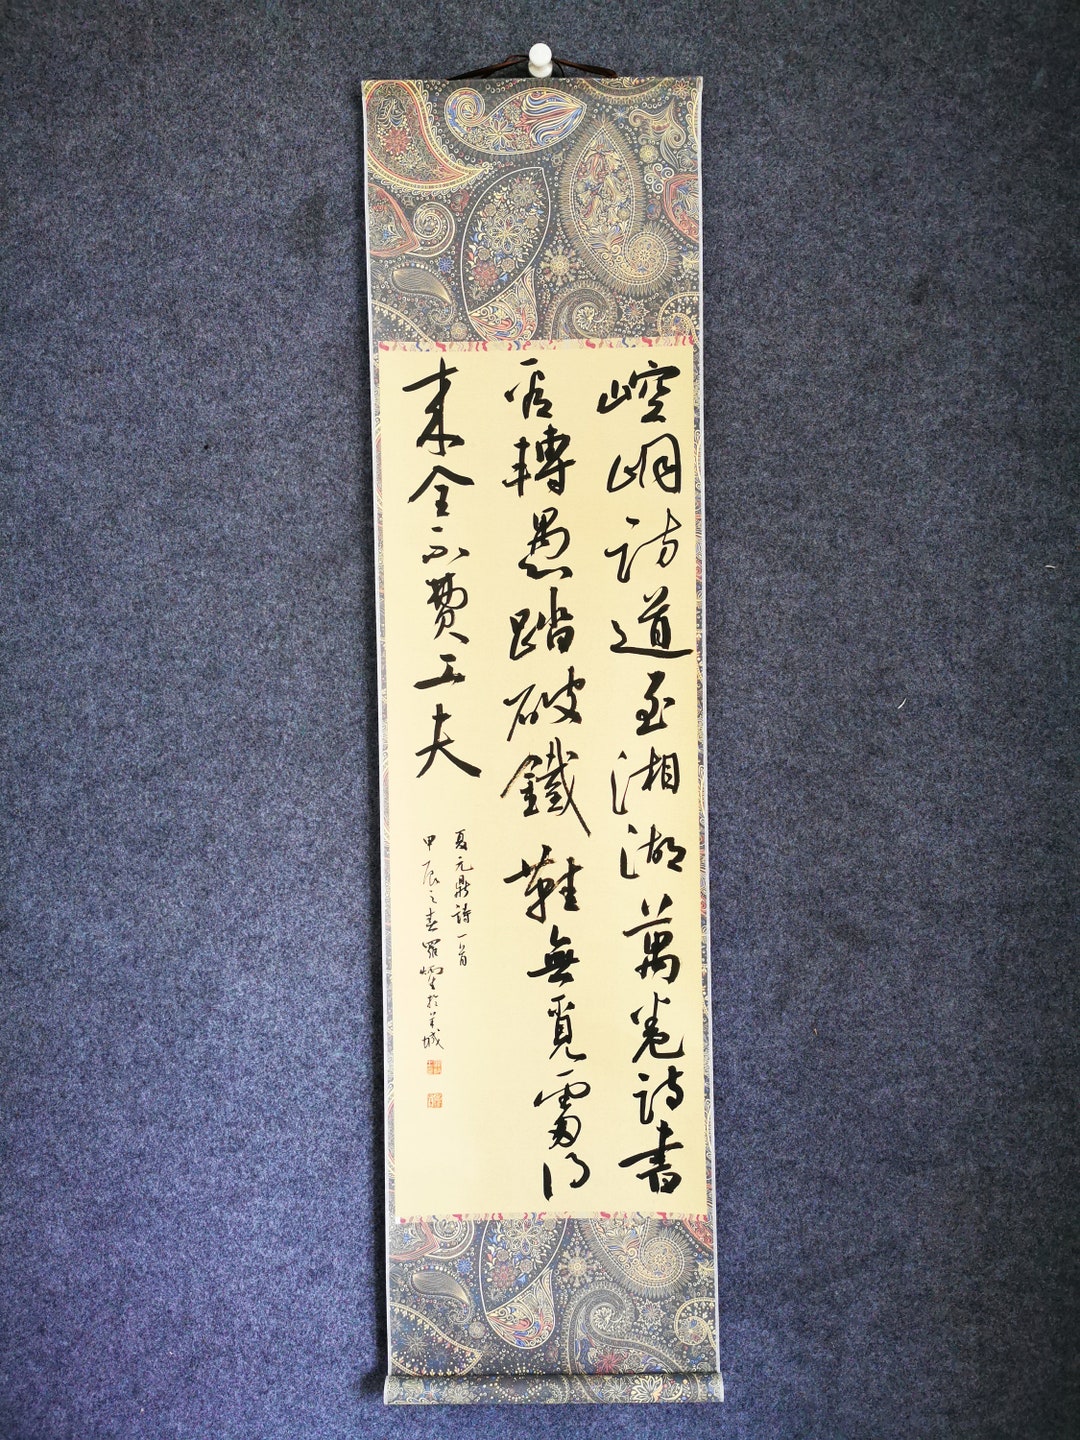 崆峒訪道至湘湖萬卷詩書
看轉愚踏破鐵鞋無覓處得
來全不費工夫
夏元鼎詩一首
甲辰之春羅炳生於羊城